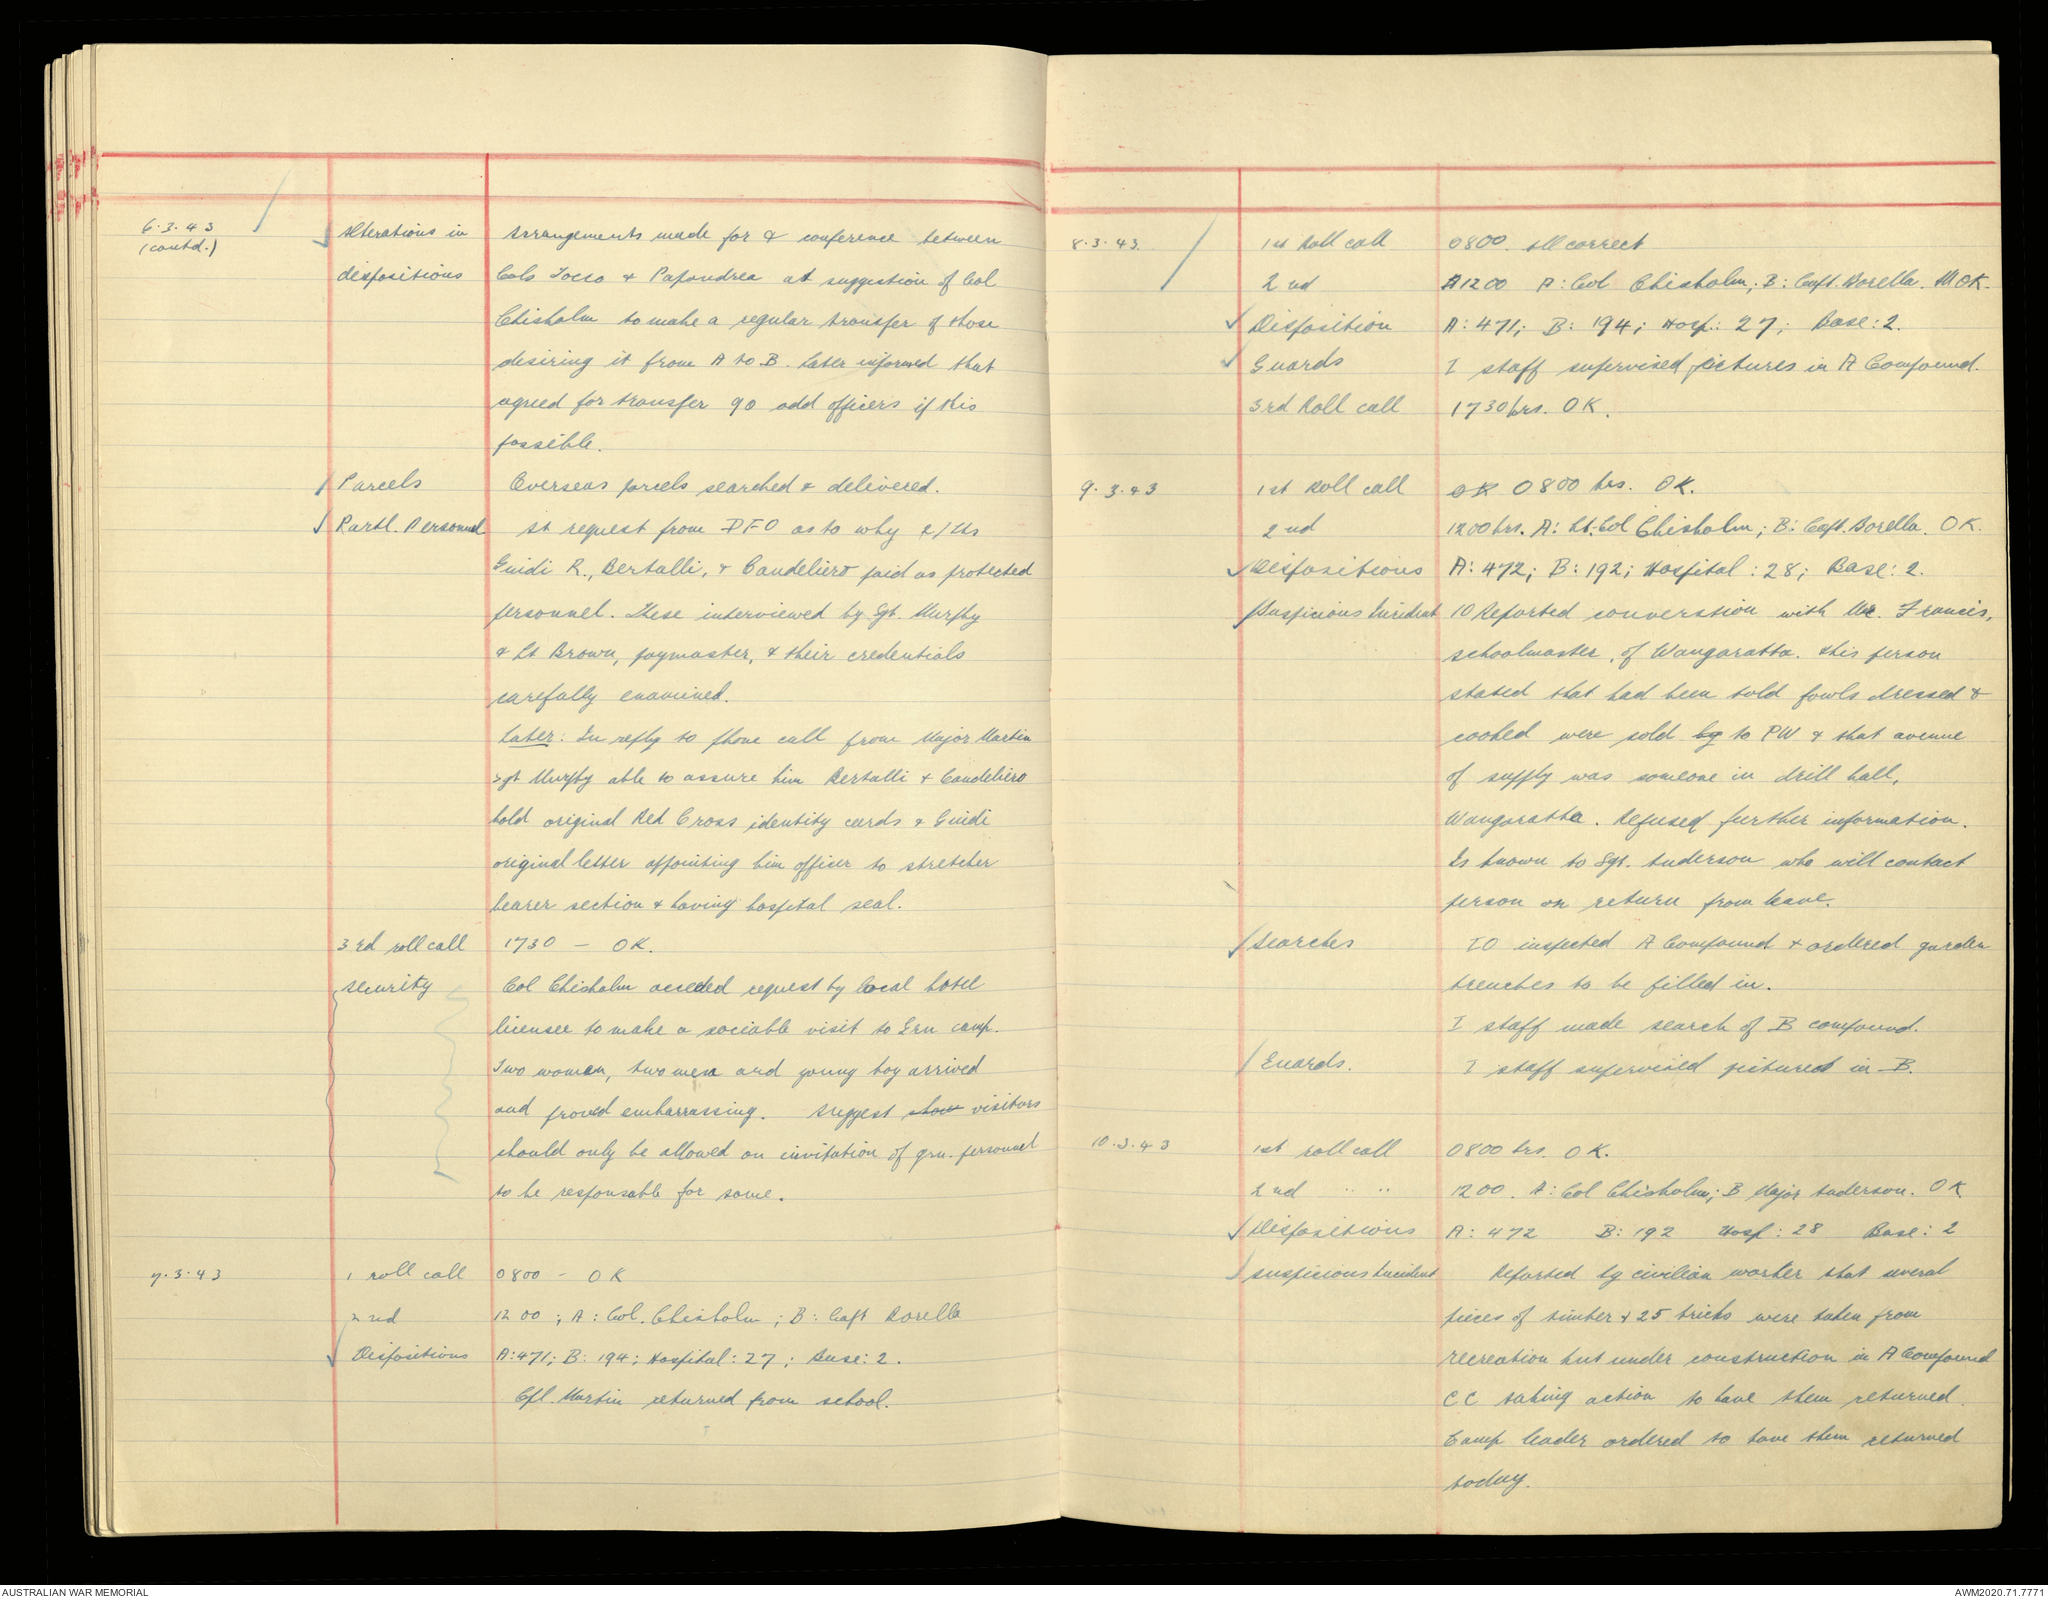 6.3.43 Alterations in Arrangements made for a conference between
(contd.) dispositions Cols Tocco & Papandrea at suggestion of Col
Chisholm to make a regular transfer of those
desiring it from A to B. Later informed that
agreed for transfer 90 odd officers if this
possible.
Parcels Overseas parcels searched & delivered.
Partl. Personnel At request from DFO as to why 2/Lts
Guidi R., Bertalli, & Candeliero paid as protected
personnel. These interviewed by Sgt. Murphy
& Lt Brown, paymaster, & their credentials
carefully examined.
Later: In reply to phone call from Major Martin
Sgt Murphy able to assure him Bertalli & Candeliero
hold original Red Cross identity cards & Guidi
original letter appointing him officer to stretcher
bearer section & having hospital seal.
3rd roll call 1730 - OK.
Security Col Chisholm acceded request by local hotel
licensee to make a sociable visit to Grn camp.
Two women, two men and young boy arrived
and proved embarrassing. Suggest show visitors
should only be allowed on invitation of grn. personnel
to be responsable for same.
7.3.43 1 roll call 0800 - OK
2nd 1200; A: Col. Chisholm; B: Capt Borella
Dispositions A: 471; B: 194; Hospital: 27; Base: 2.
Cpl. Martin returned from school.
8.3.43. 1st Roll call 0800. All correct
2nd A1200 A: Col Chisholm; B: Capt. Borella. All OK.
Disposition A: 471; B: 194; Hosp.: 27; Base: 2.
Guards I staff supervised pictures in A Compound.
3rd Roll call 1730 hrs. OK.
9.3.43 1st Roll call OK 0800 hrs. OK.
2nd 1200 hrs. A: Lt. Col Chisholm; B: Capt. Borella. OK.
Dispositions A: 472; B: 192; Hospital: 28; Base: 2.
Suspicious Incident IO Reported converstion with Mr. Francis,
schoolmaster, of Wangaratta. This person
stated that had been told fowls dressed &
cooked were sold by to PW & that avenue
of supply was someone in drill hall,
Wangaratta. Refused further information.
Is known to Sgt. Anderson who will contact
person on return from leave.
Searches IO inspected A Compound & ordered garden
trenches to be filled in.
I staff made search of B compound.
Guards. I staff supervised pictures in B.
10.3.43 1st roll call 0800 hrs. OK.
2nd " " 1200. A: Col Chisholm; B Major Anderson. OK
Dispositions A: 472 B: 192 Hosp: 28 Base: 2
Suspicious Incident Reported by civilian worker that several
pieces of timber & 25 bricks were taken from
recreation hut under construction in A Compound
CC taking action to have them returned.
Camp leader ordered to have them returned
today.
AUSTRALIAN WAR MEMORIAL
AWM2020.71.7771